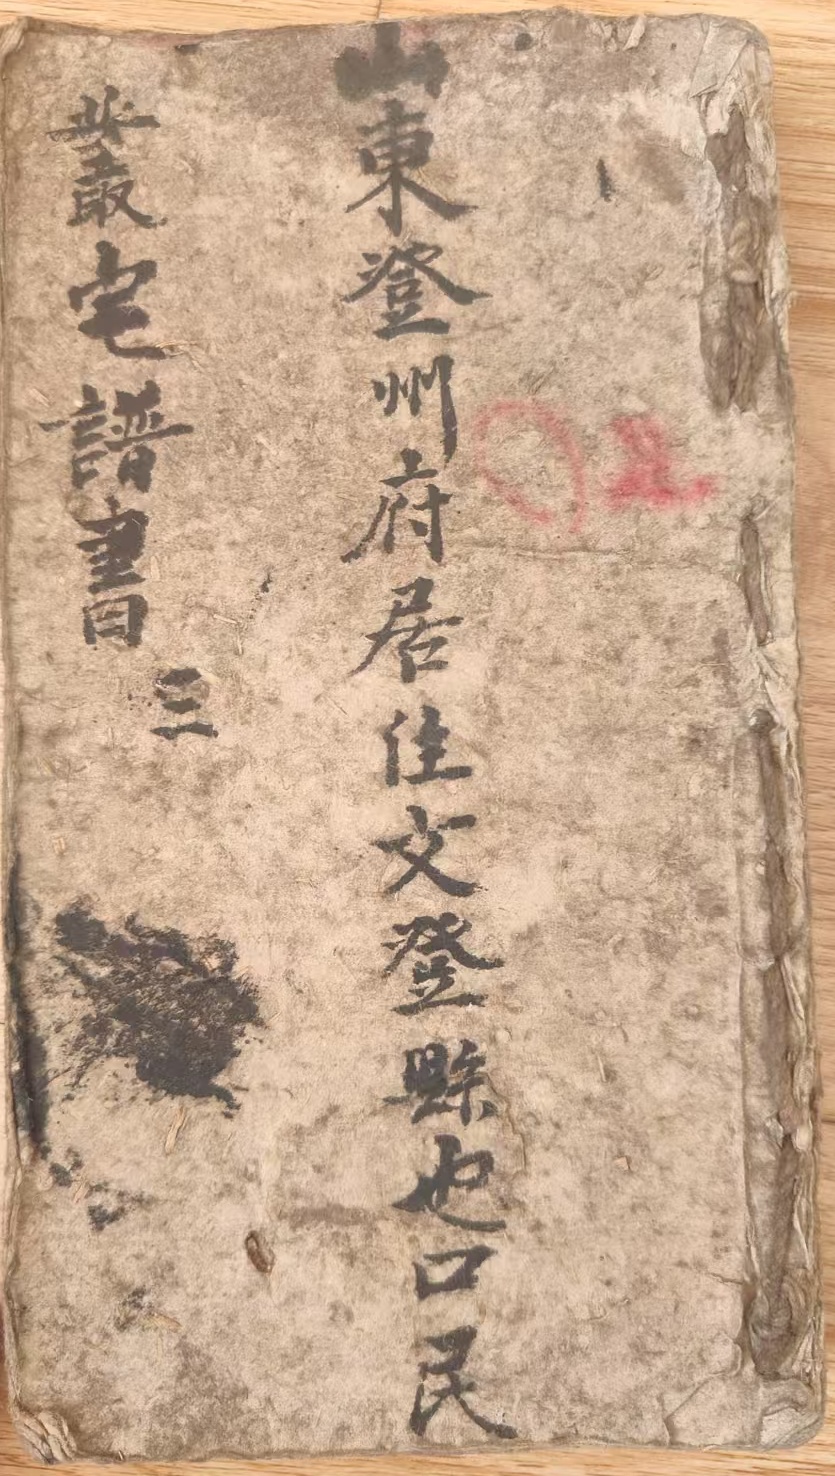 山東登州府居住文登縣也口民
叢宅譜書
三